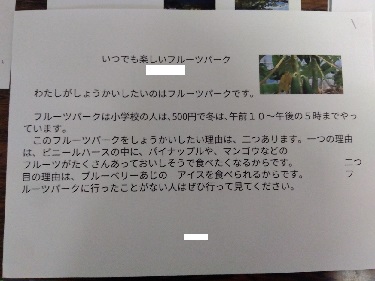 いつでも楽しいフルーツパーク
わたしがしょうかいしたいのはフルーツパークです。
フルーツパークは小学校の人は、500円で冬は、午前10～午後の5時までやっ
ています。
このフルーツパークをしょうかいしたい理由は、二つあります。一つの理由
は、ビニールハースの中に、パイナップルや、マンゴウなどの
フルーツがたくさんあっておいしそうで食べたくなるからです。 二つ
目の理由は、ブルーベリーあじの アイスを食べられるからです。 フ
ルーツパークに行ったことがない人はぜひ行って見てください。